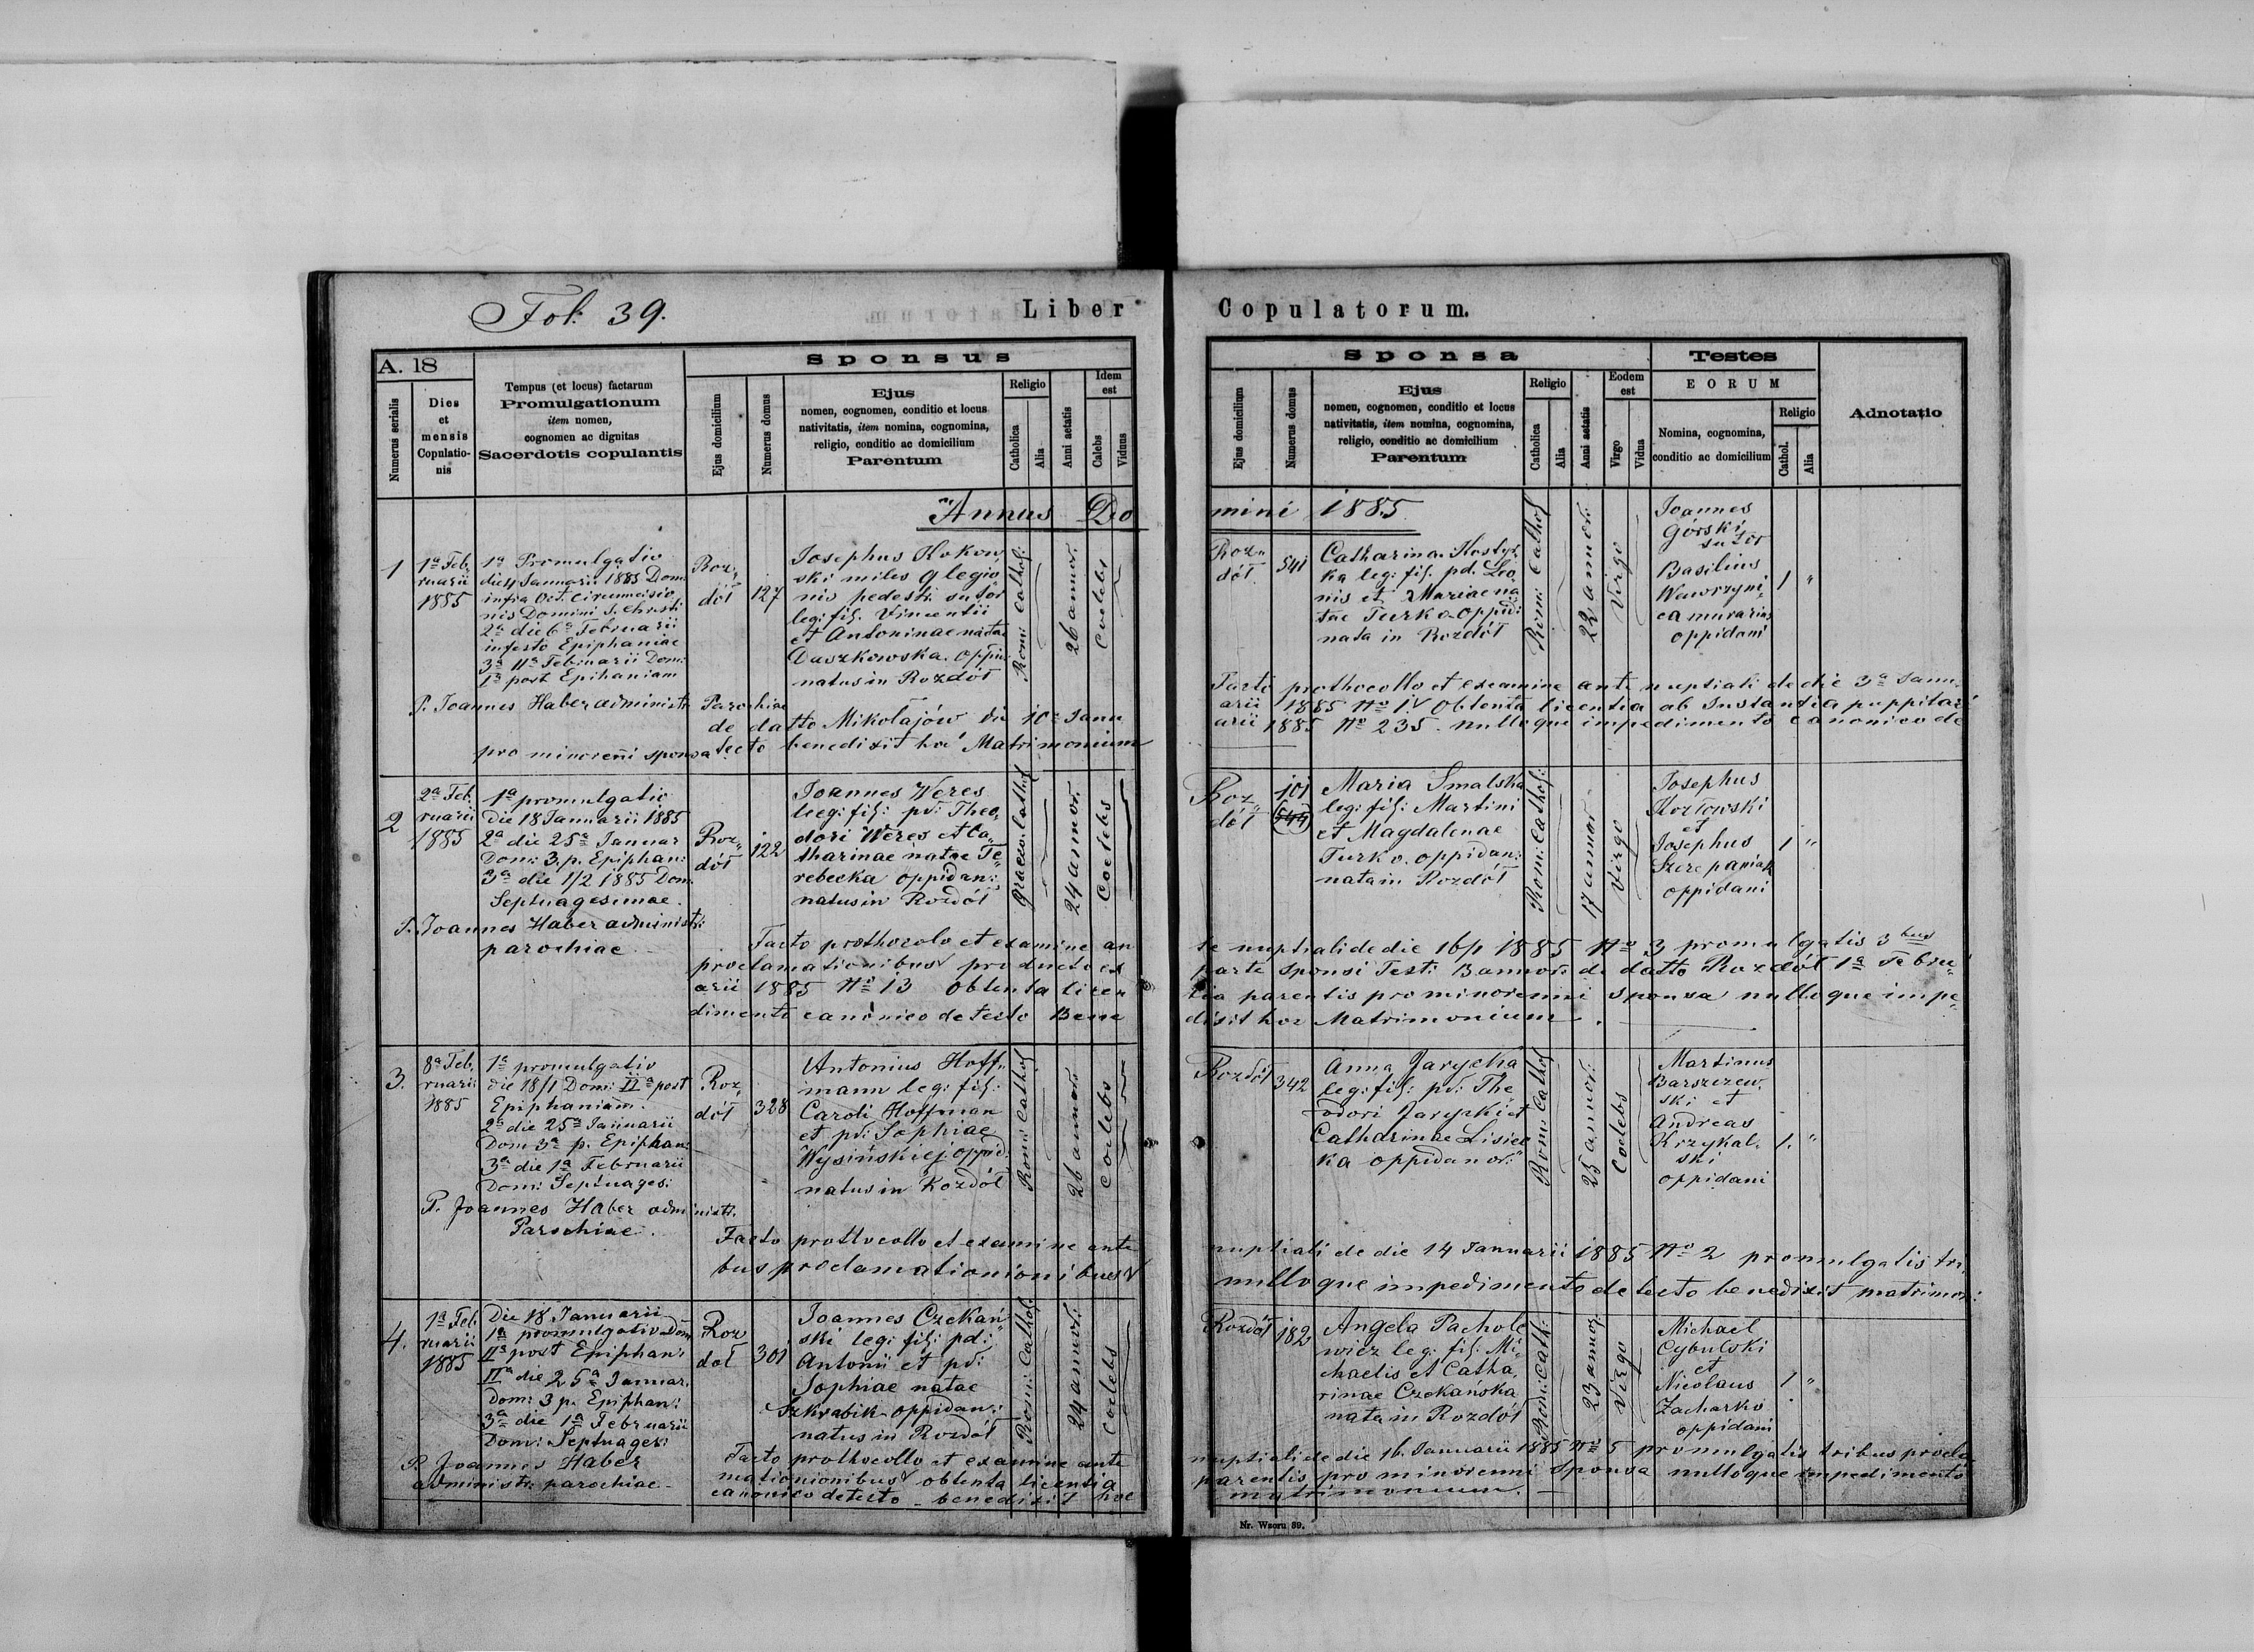 Fol: 39.
Liber Copulatorum.
A. 18
Numerus serialis
Dies
et
mensis
Copulatio-
nis
Tempus (et locus) factarum
Promulgationum
item nomen,
cognomen ac dignitas
Sacerdotis copulantis
Sponsus
Ejus domicilium
Numerus domus
Ejus
nomen, cognomen, conditio et locus
nativitatis, item nomina, cognomina,
religio, conditio ac domicilium
Parentum
Religio
Catholica
Alia
Anni aetatis
Idem
est
Calebs
Vidnus
Sponsa
Ejus domicilium
Numerus domus
Ejus
nomen, cognomen, conditio et locus
nativitatis, item nomina, cognomina,
religio, conditio ac domicilium
Parentum
Religio
Catholica
Alia
Anni aetatis
Eodem
est
Virgo
Vidua
Testes
EORUM
Nomina, cognomina,
conditio ac domicilium
Religio
Cathol.
Alia
Adnotatio
Annus Do
mini 1885
1
1a Feb,
ruarii
1885
1a Promulgatio
die 4 Januarii 1885 Dom
infra Oct. Circumcisio
nis Domini J. Christi
2a die 6a Februarii
in festo Epiphaniae
3a 11a Februarii Dom:
1a post Epihaniam
P. Joannes Haber administr Parochiae
Roz,,
dół
127
Josephus Rokow
ski miles 9 legio
nis pedestr. sutor
leg: fil. Vincentii
et Antoninae natae
Daszkowska. oppid:
natus in Rozdół
Rom: Cathol:
26 annor.
Coelebs
Roz,,
dół
541
Catharina Kostyr
ka leg: fil. pd. Leo
nis et Mariae na
tae Turko oppid:
nata in Rozdół
Rom: Cathol
22 annor:
Virgo
Joannes
Górski
sutor
Basilius
Wawrzyni
ca murarius
oppidani
1 "
Facto prothocollo et examine ante nuptiali de die 3a Janu
arii 1885 No 1 Obtenta licentia ab Instantia puppilari
de datto Mikołajów die 10a Janu
arii 1885 No 235. nulloque impedimento canonico de
pro minorenni sponsa tecto benedixit hoc Matrimonium
2
2a Feb.
ruarii
1885
1a promulgatio
Die 18 Januarii 1885
2a die 25a Januar
Dom: 3. p. Epiphan:
3a die 1/2 1885 Dom.
Septuagesimae.
P. Joannes Haber administr:
parochiae
Roz,,
dół
122
Joannes Weres
leg: fil: pd: Theo,
dori Weres et Ca,,
tharinae natae Te,,
rebecka oppidan:
natus in Rozdół
Graeco. Cathol
24 annor.
Coelebs
Roz,,
dół
101
544
Maria Smalska
leg: fil: Martini
et Magdalenae
Turko. oppidan:
nata in Rozdół
Rom: Cathol:
17 annor
Virgo
Josephus
Kozłowski
et
Josephus
Szczepaniak
oppidani
1 "
Facto prothocolo et examine an
te nuptiali de die 16/1 1885 No 3 promulgatis 3bus
proclamationibus producto ex
parte sponsi Test: Bannor: de datto Rozdół 1a Febru,,
arii 1885 No 13 Obtenta licen
tia parentis pro minorenni sponsa nulloque impe,,
dimento canonico detecto Bene
dixit hoc Matrimonium.
3.
8a Feb.
ruarii
1885
1a promulgatio
die 18/1 Dom: IIa post
Epiphaniam.
2a die 25a Januarii
Dom 3a p. Epiphan:
3a die 1a Februarii
Dom: Septuages:
P. Joannes Haber administr.
Parochiae.
Roz
dół
328
Antonius Hoff,,
mann leg: fil:
Caroli Hoffman
et pd: Sophiae
Wysińskiej oppid:
natus in Rozdół
Rom: Cathol
26 annor
Coelebs
Rozdół
342
Anna Jarycka
leg: fil: pd: The
odori Jaryski et
Catharinae Lisiec
ka oppidanor:
Rom: Cathol
25 annor:
Coelebs
Martinus
Barszczew.
ski et
Andreas
Krzykal.
ski
oppidani
1. "
Facto prothocollo et examine ante
nuptiali de die 14 Januarii 1885 No 2 promulgatis tri,
bus proclamationionibus
nulloque impedimento detecto benedixit matrimon:
4.
1a Feb
ruarii
1885
Die 18 Januarii
1a promulgatio Dom
IIa post Epiphan:
IIa die 25a Januar.
Dom: 3 p. Epiphan:
3a die 1a Februarii
Dom: Septuages:
P. Joannes Haber
administr: parochiae
Roz
doł
301
Joannes Czekań
ski leg: fil: pd:
Antonii et pd:
Sophiae natae
Szkrabik oppidan:
natus in Rozdół
Rom: Cathol.
24 annor:
Coelebs
Rozdół
182
Angela Pachole
wicz leg: fil: Mi,
chaelis et Catha,
rinae Czekańska
nata in Rozdół
Rom: Cath:
23 annor
Virgo
Michael
Cybulski
et
Nicolaus
Zacharko
oppidani
1 "
Facto prothocollo et examine ante
nuptiali de die 16. Januarii 1885 No 5 promulgatis tribus procla
mationionibus obtenta licentia
parentis pro minorenni sponsa nulloque impedimento
canonico detecto benedixit hoc
matrimonium.
Nr. Wzoru 39.